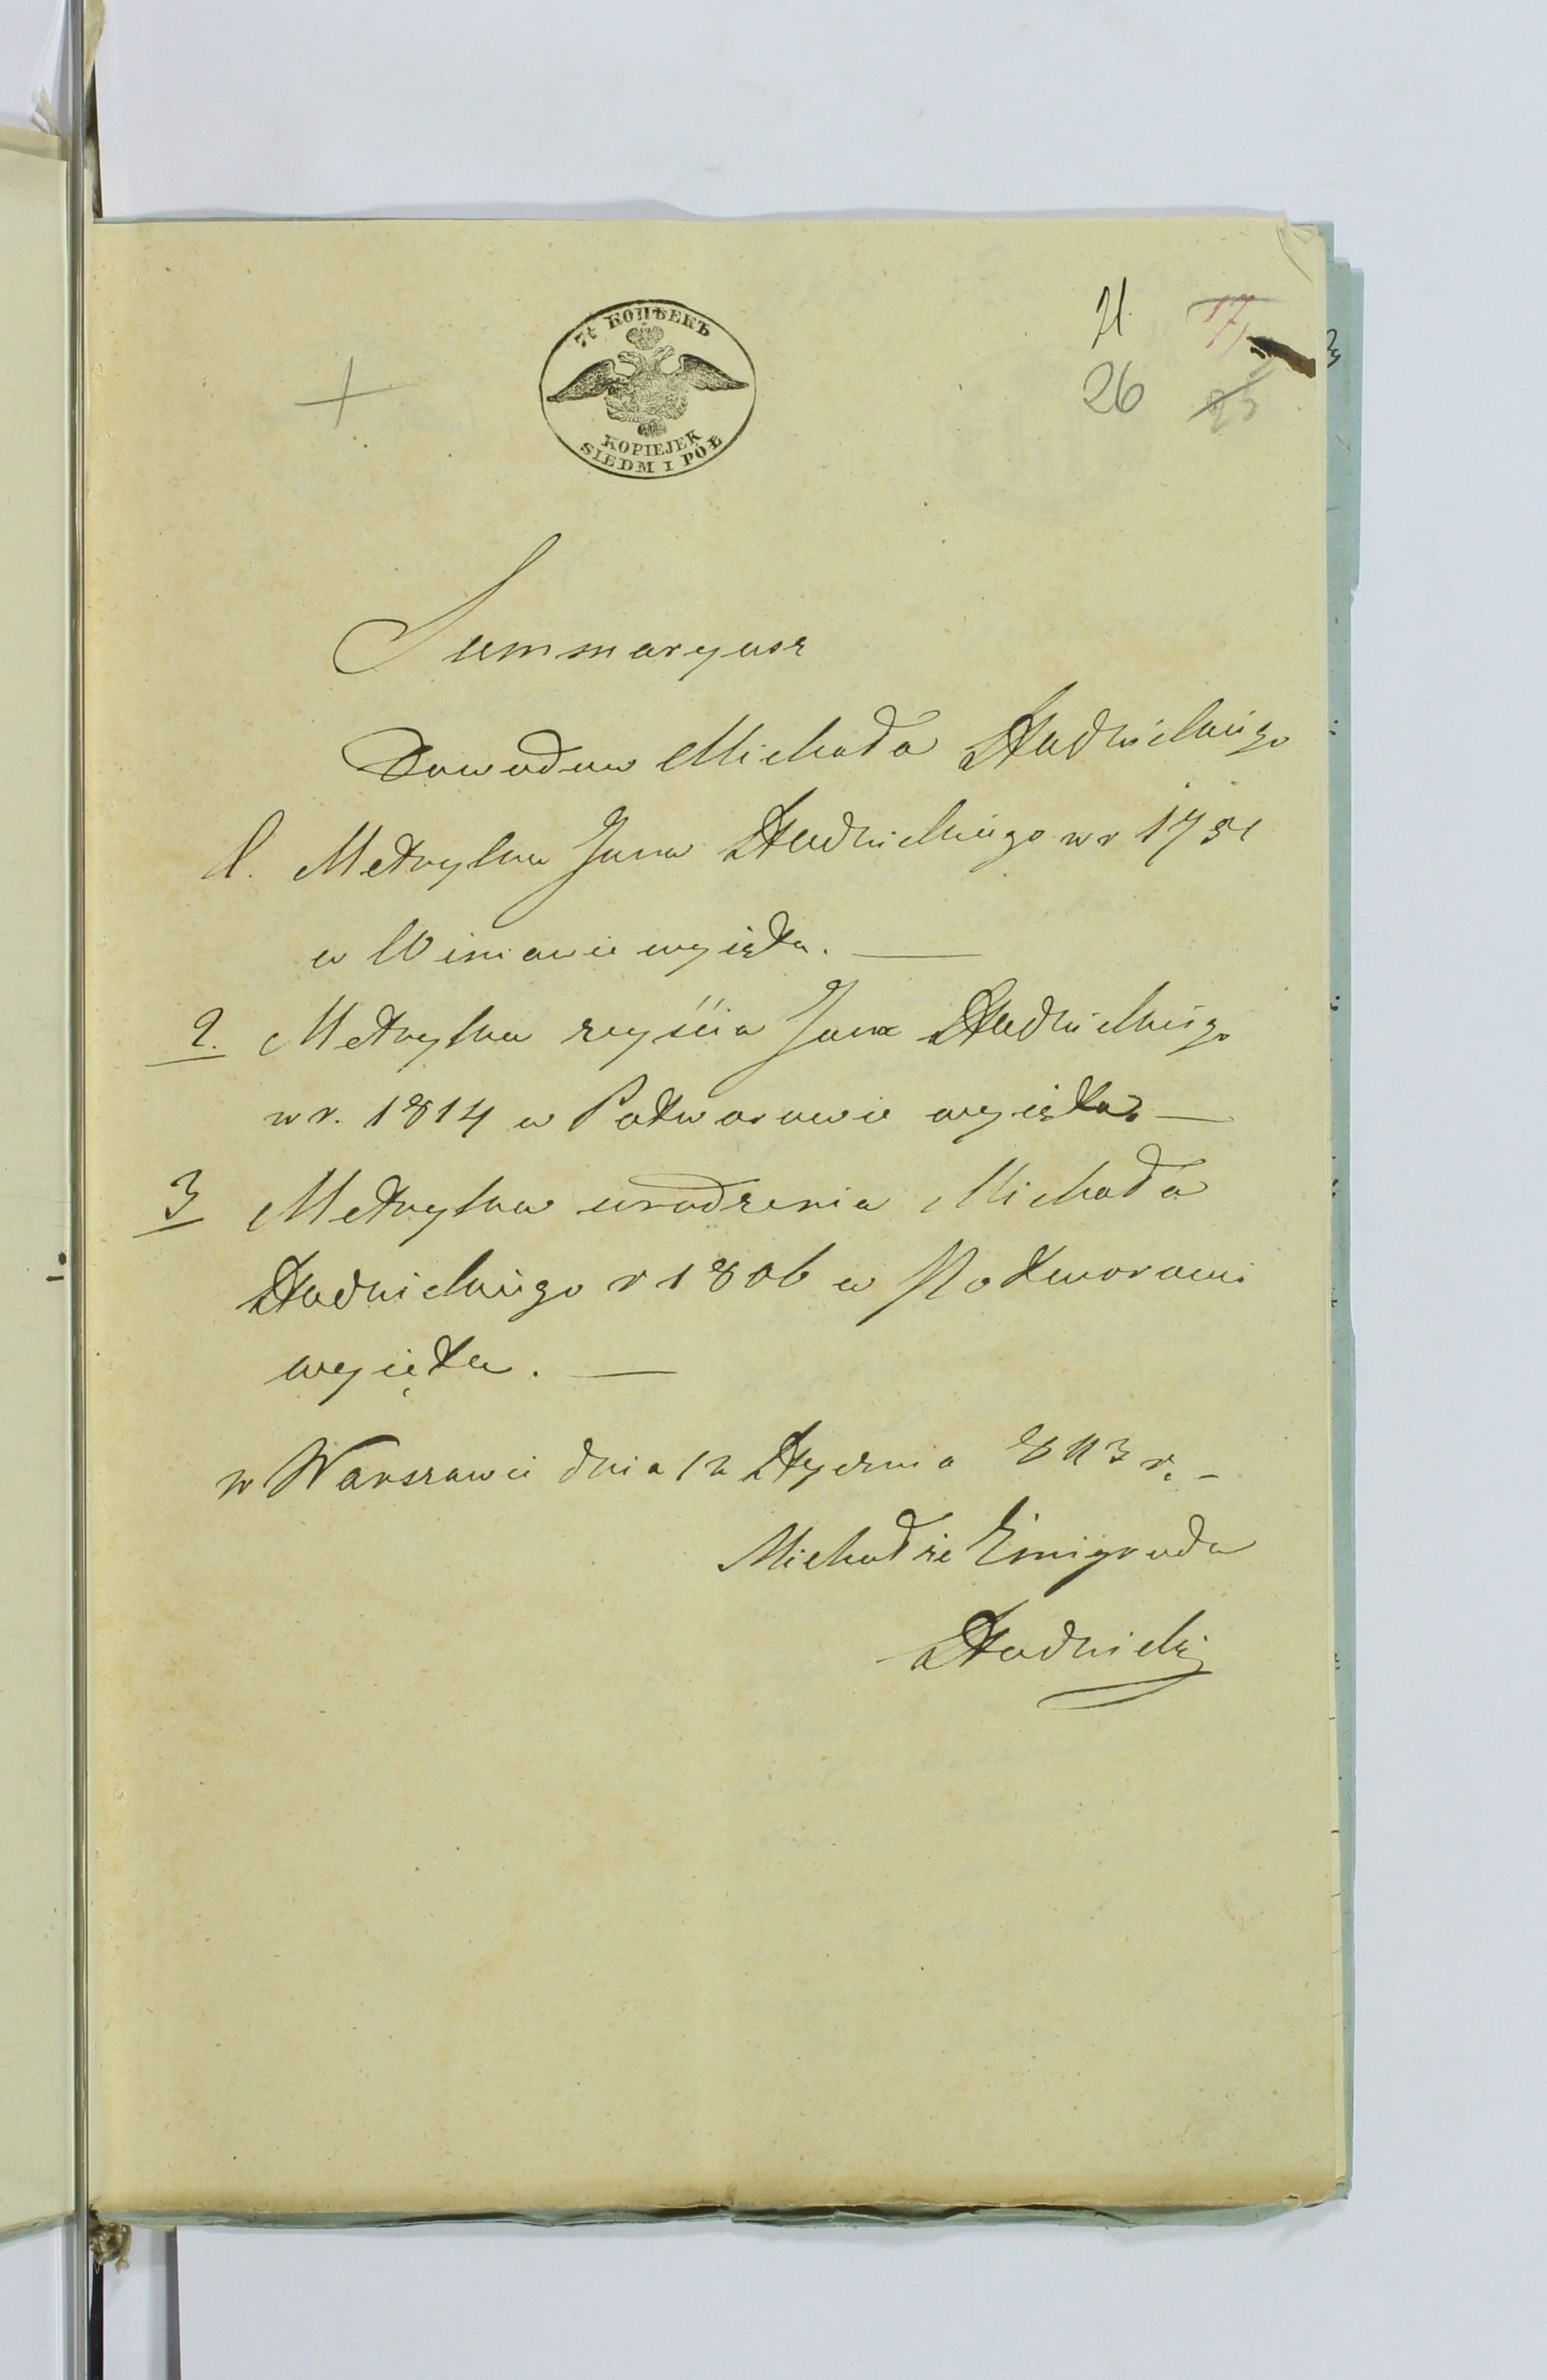 21. 17
26 25
7½ КОПѢЕКЪ
KOPIEJEK
SIEDM I PÓŁ
Summaryusz
Dowodow Michała Stadnickiego
1. Metryka Jana Stadnickiego w r 1751
w Winiawie wyięta. —
2. Metryka zeyścia Jana Stadnickiego
w r. 1814 w Potworowie wyięta —
3 Metryka urodzenia Michała
Stadnickiego r 1806 w Potworowi
wyięta. —
w Warszawie dnia 12 Stycznia 843 r. –
Michał ze Żmigroda
Stadnicki